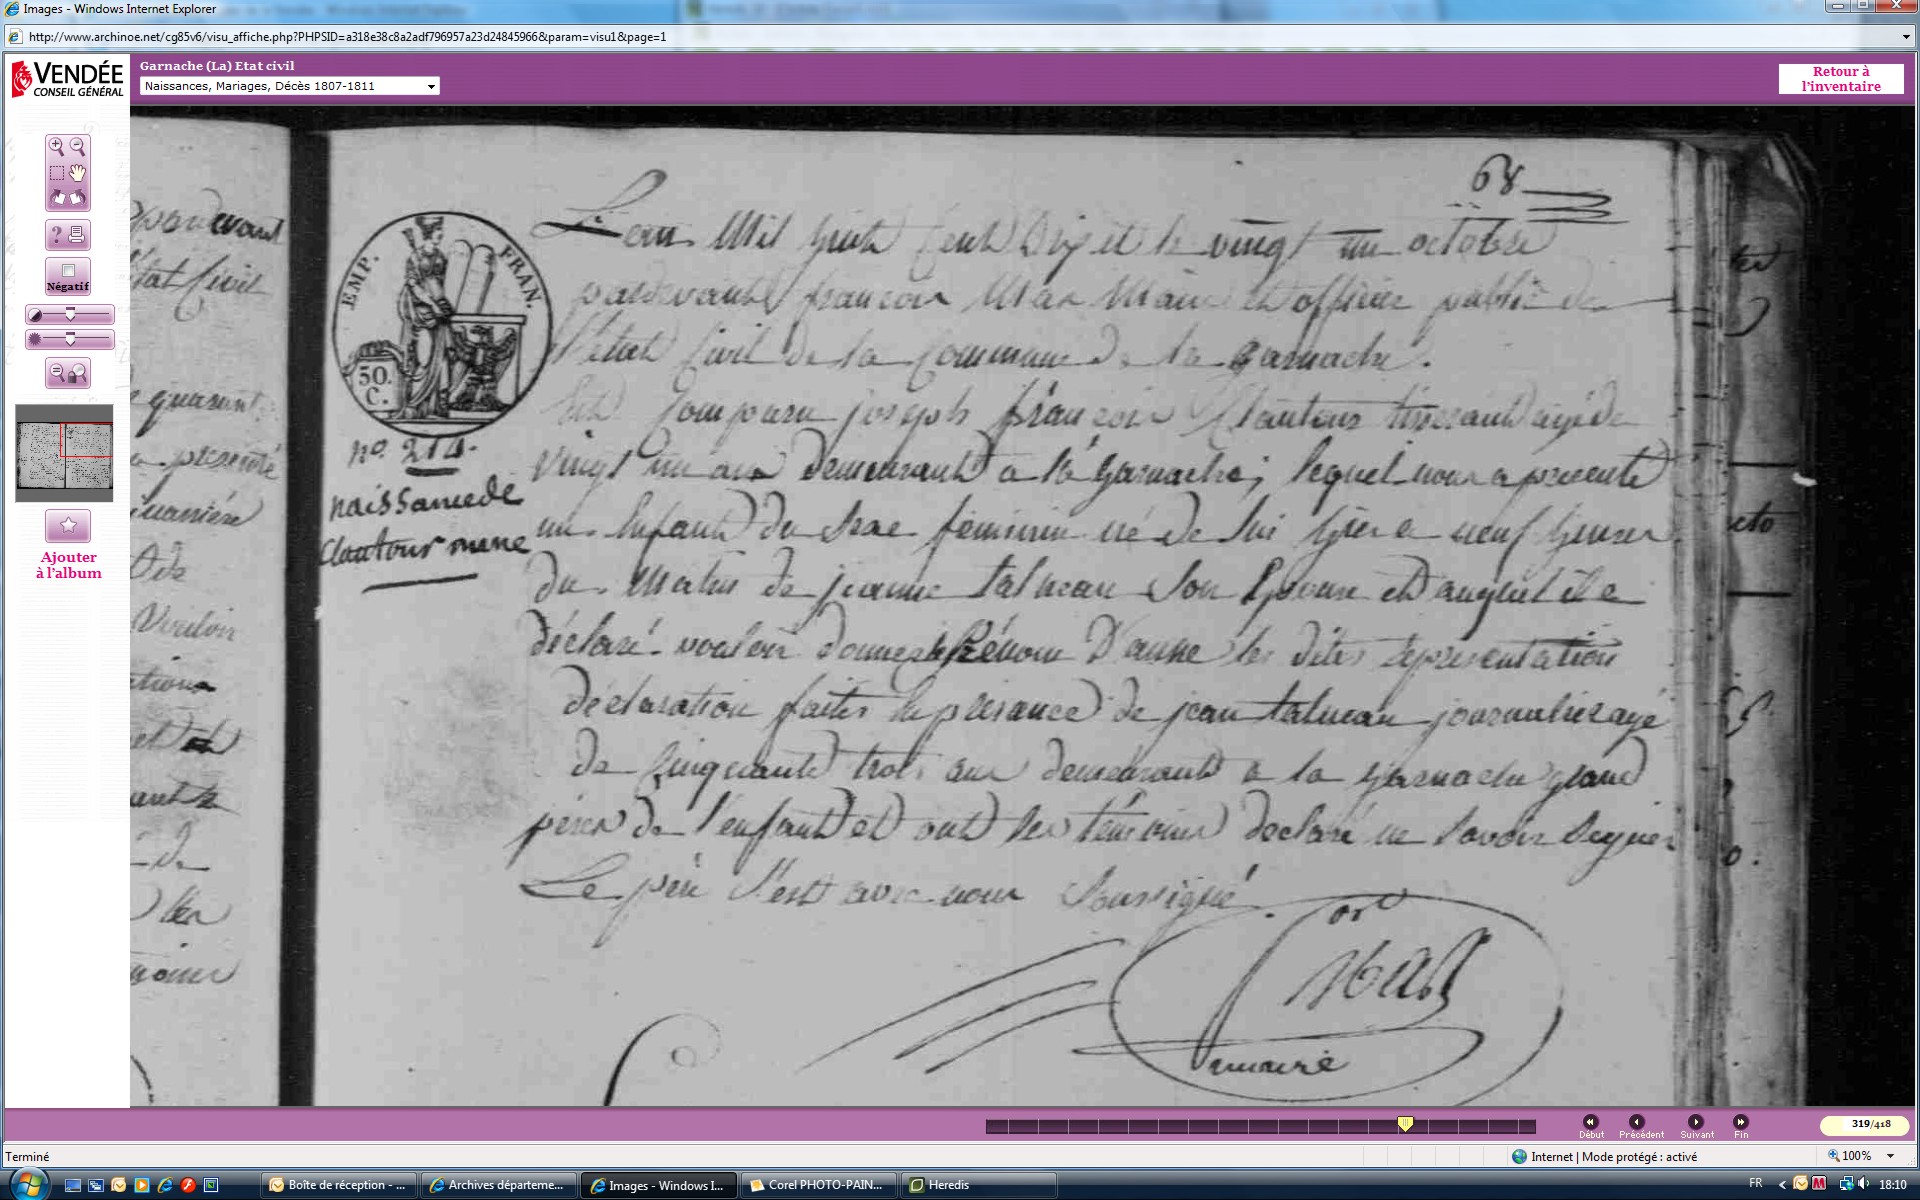 Images - Windows Internet Explorer
http://www.archinoe.net/cg85v6/visu_affiche.php?PHPSID=a318e38c8a2adf796957a23d24845966&param=visu1&page=1
VENDÉE
CONSEIL GÉNÉRAL
Garnache (La) Etat civil
Naissances, Mariages, Décès 1807-1811
Retour à
l'inventaire
Négatif
Ajouter
à l'album
68
EMP. FRAN.
50.
C.
no. 214.
naissance de
Clautour anne
L'an Mil huit Cent Dix et le vingt un octobre
pardevant françois Mar Maire et officier public de
l'état Civil de la Commune de la garnache.
Est Comparu joseph françois Clautour tisserant agé de
vingt un ans demeurant a la garnache, lequel nous a présenté
un Enfant du Sexe féminin né de lui hier a neuf heures
du Matin de jeanne talneau Son Epouse et auquel il a
déclaré vouloir donner le Prénom D'anne les dites représentation
déclaration faites En présance de jean talneau journalier agé
de Cinquante trois ans demeurant a la garnache grand
père de l'enfant et ont les témoins déclaré ne Savoir Signer
Le père S'est avec nous Soussigné.
maire
pardevant
état Civil
quarant
présenté
Vouloir
319/418
Début
Précédent
Suivant
Fin
Terminé
Internet | Mode protégé : activé
100%
Boîte de réception - ...
Archives départeme...
Images - Windows I...
Corel PHOTO-PAIN...
Heredis
FR
18:10